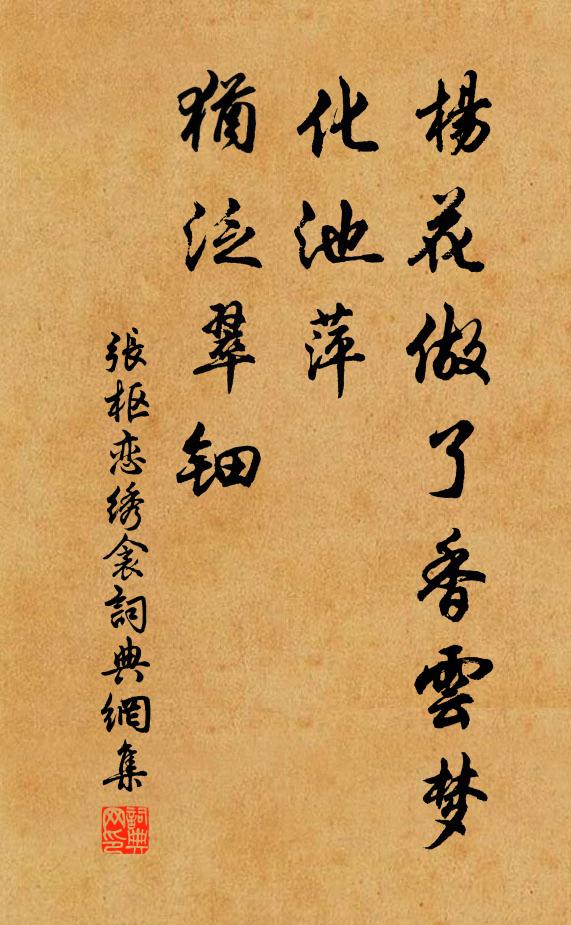 楊花做了香雲梦
化池萍
猶泛翠钿
張枢恋绣衾詞典網集
詞典
网印